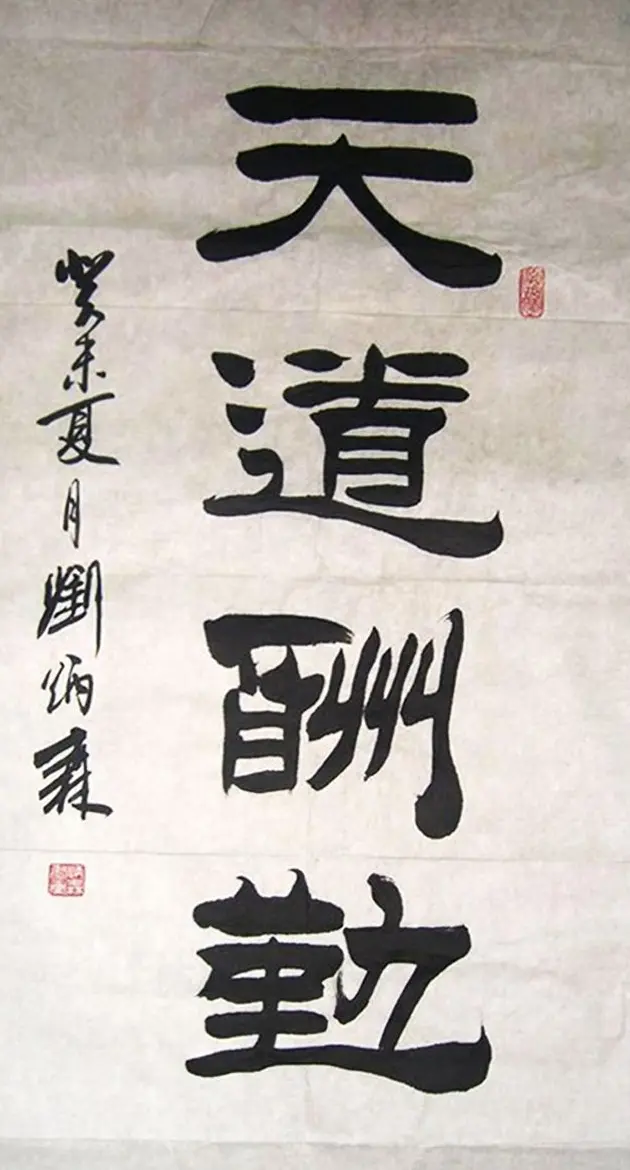 天道酬勤
癸未夏月劉炳森